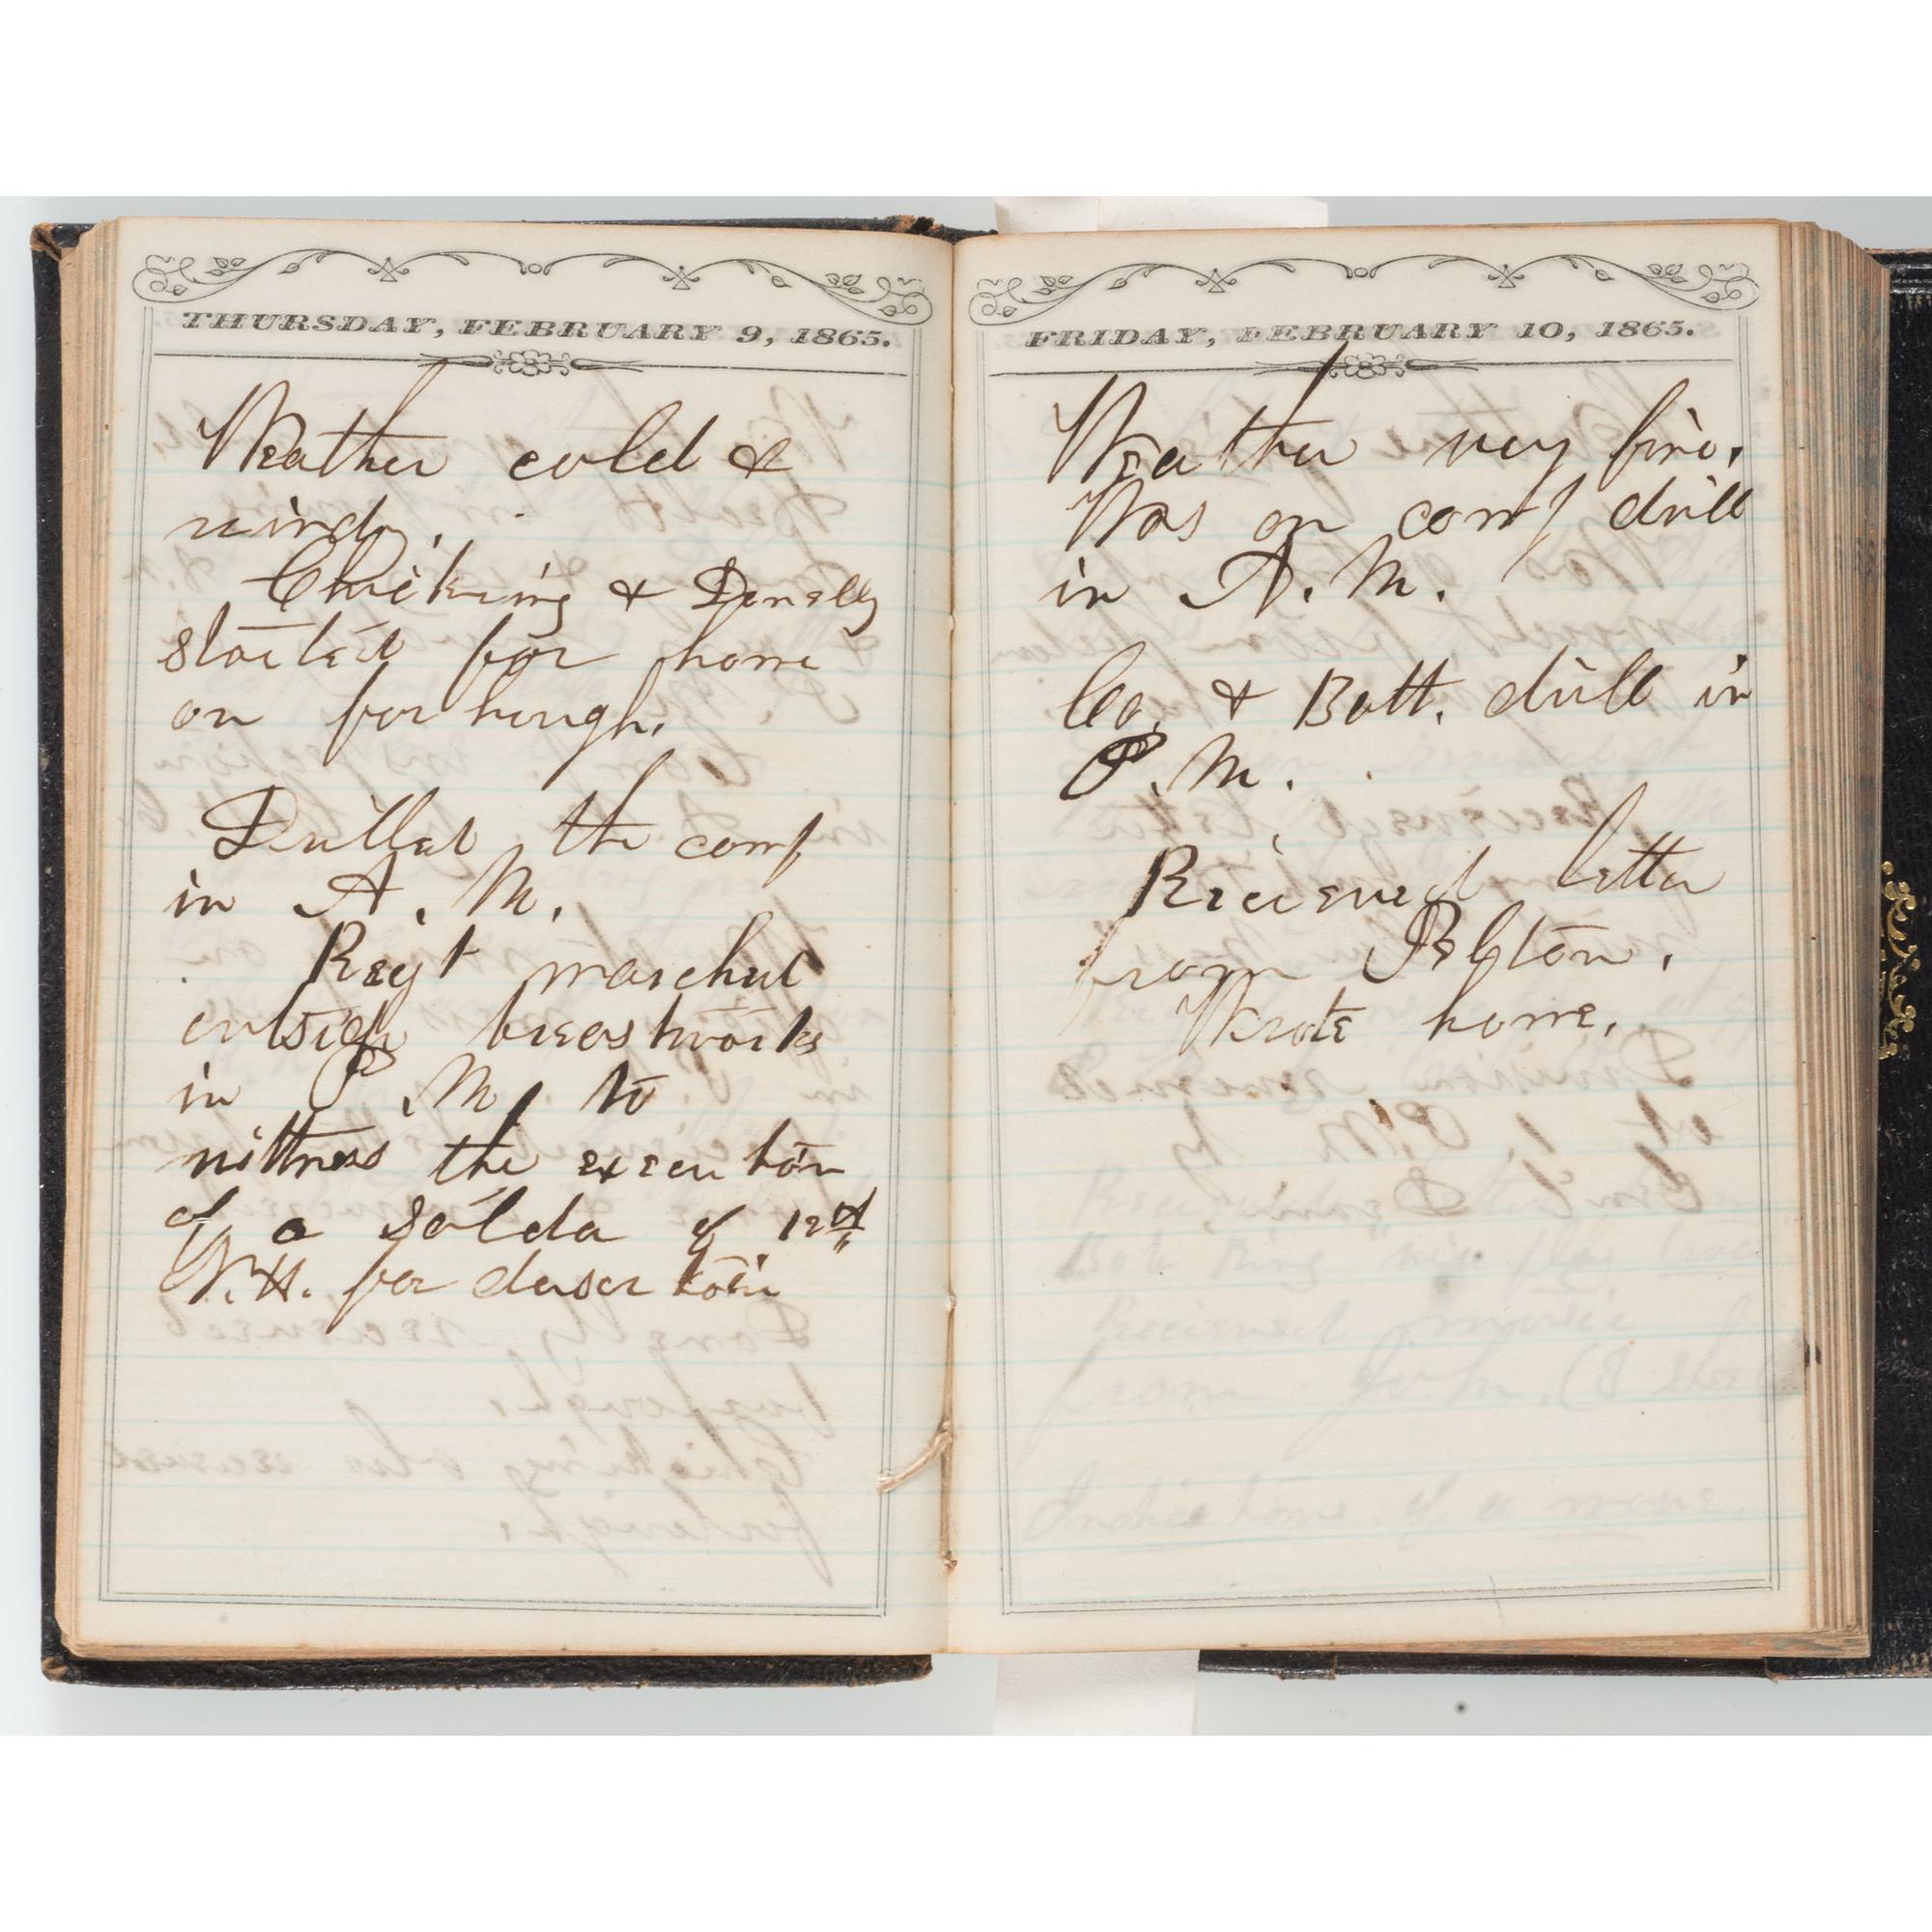 THURSDAY, FEBRUARY 9, 1865.
Weather cold &
windy.
Chickring & Donelly
started for home
on forlough.
Drilled the comp
in A. M.
Regt marched
outside breastworks
in P. M. to
wittness the execution
of a soldier of 12th
N. H. for desertion
FRIDAY, FEBRUARY 10, 1865.
Weather very fine.
Was on comp drill
in A. M.
Co. & Batt. drill in
P. M.
Recieved letter
from
Wrote home.